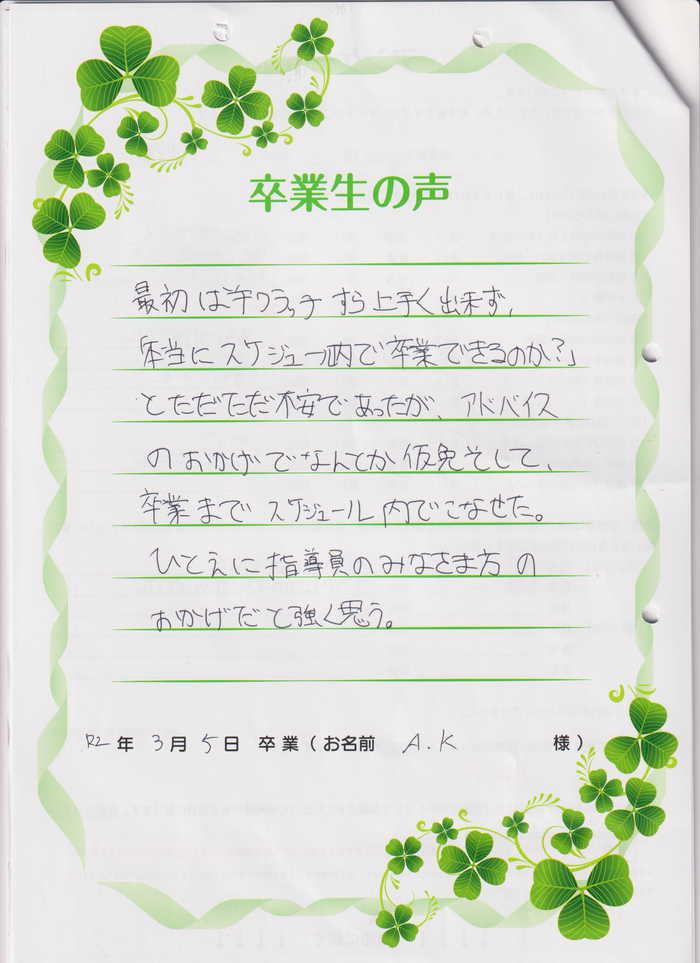 卒業生の声
最初は半クラッチすら上手く出来ず、
「本当にスケジュール内で卒業できるのか？」
とただただ不安であったが、アドバイス
のおかげでなんとか仮免そして、
卒業までスケジュール内でこなせた。
ひとえに指導員のみなさま方の
おかげだと強く思う。
R2年 3月 5日 卒業（お名前 A.K 様）